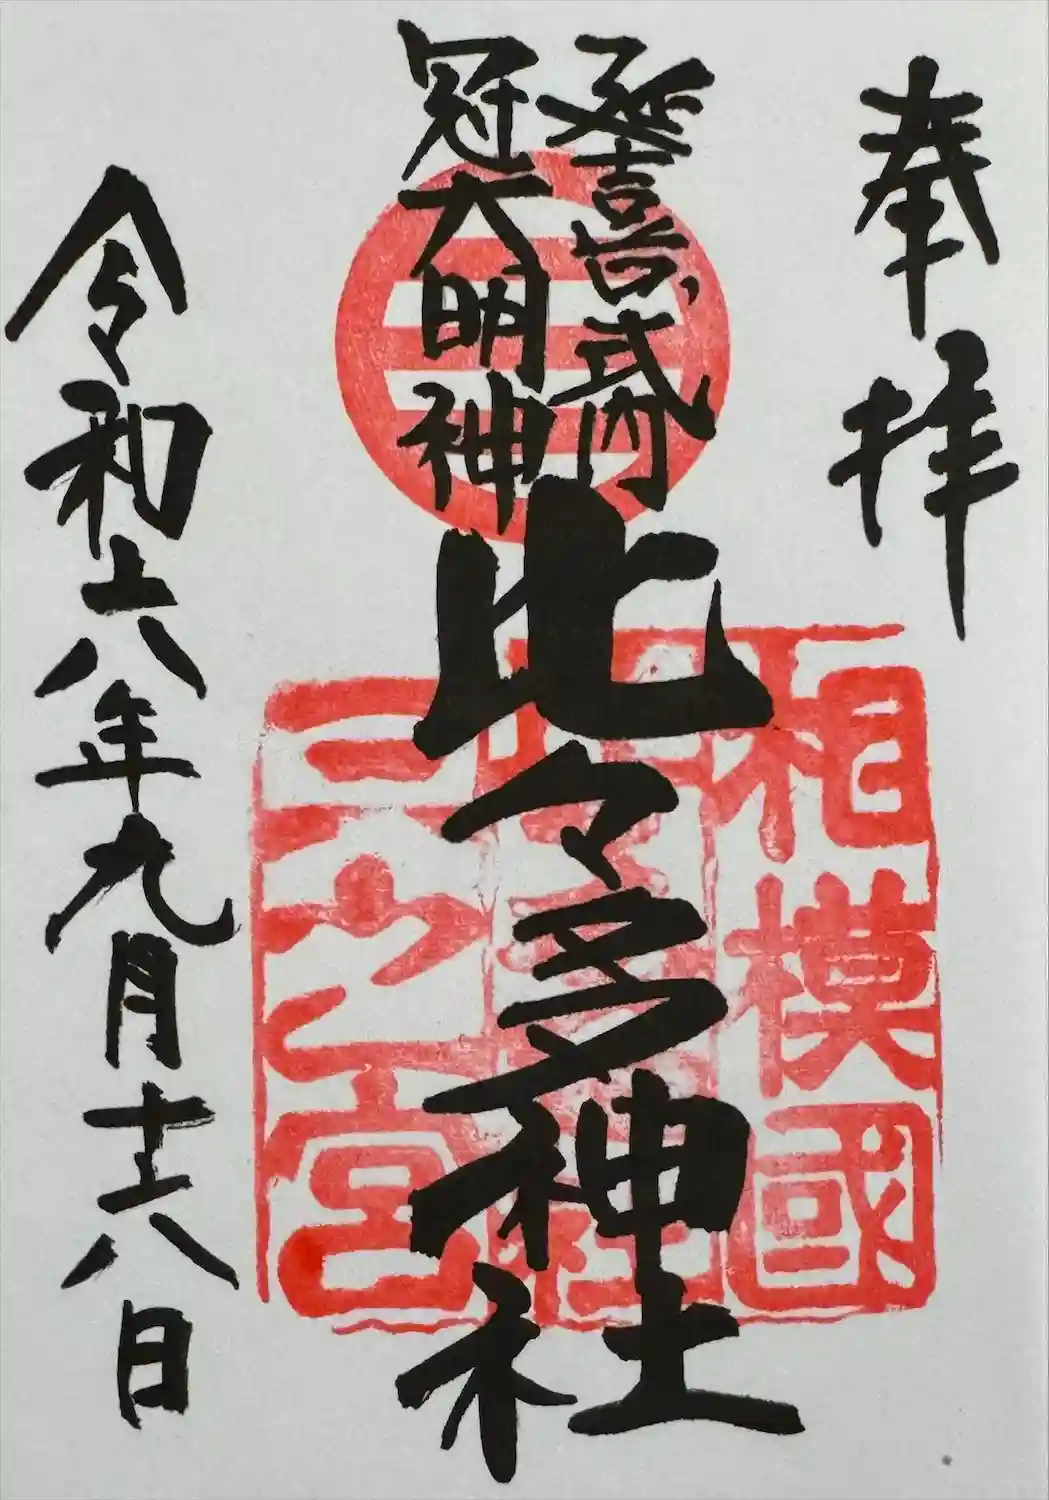 奉拝
延喜式内
冠大明神
比々多神社
令和六年九月十六日
相模國
三之宮